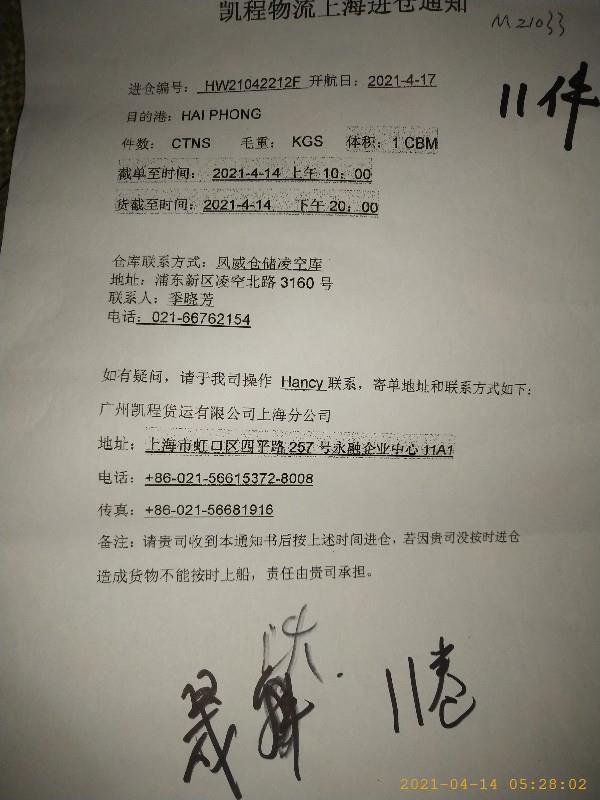 凯程物流上海进仓通知
M21033
进仓编号: HW21042212F 开航日: 2021-4-17
11件
目的港: HAI PHONG
件数: CTNS 毛重: KGS 体积: 1 CBM
截单至时间: 2021-4-14 上午 10: 00
货截至时间: 2021-4-14 下午 20: 00
仓库联系方式: 风威仓储凌空库
地址: 浦东新区凌空北路 3160 号
联系人: 季晓芳
电话: 021-66762154
如有疑问, 请于我司操作 Hancy 联系, 寄单地址和联系方式如下:
广州凯程货运有限公司上海分公司
地址: 上海市虹口区四平路 257 号永融企业中心 11A1
电话: +86-021-56615372-8008
传真: +86-021-56681916
备注: 请贵司收到本通知书后按上述时间进仓, 若因贵司没按时进仓
造成货物不能按时上船, 责任由贵司承担。
11卷
2021-04-14 05:28:02